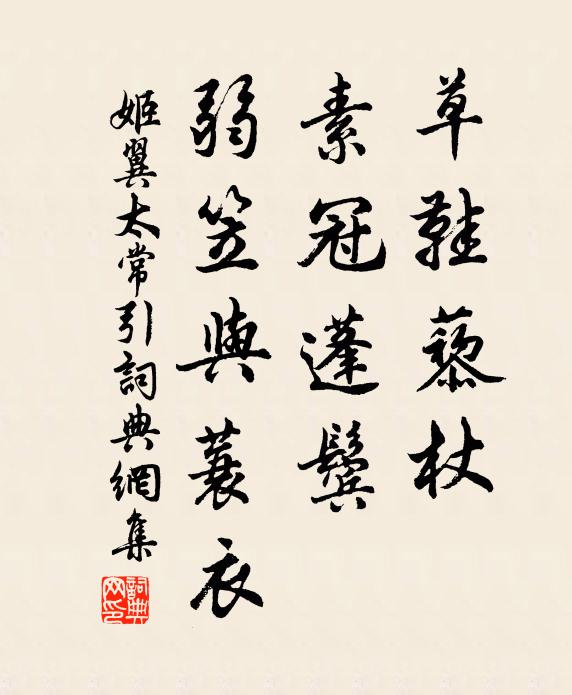 草鞋藜杖
素冠蓬鬢
弱笠與蓑衣
姬翼太常引詞典網集
詞典網印